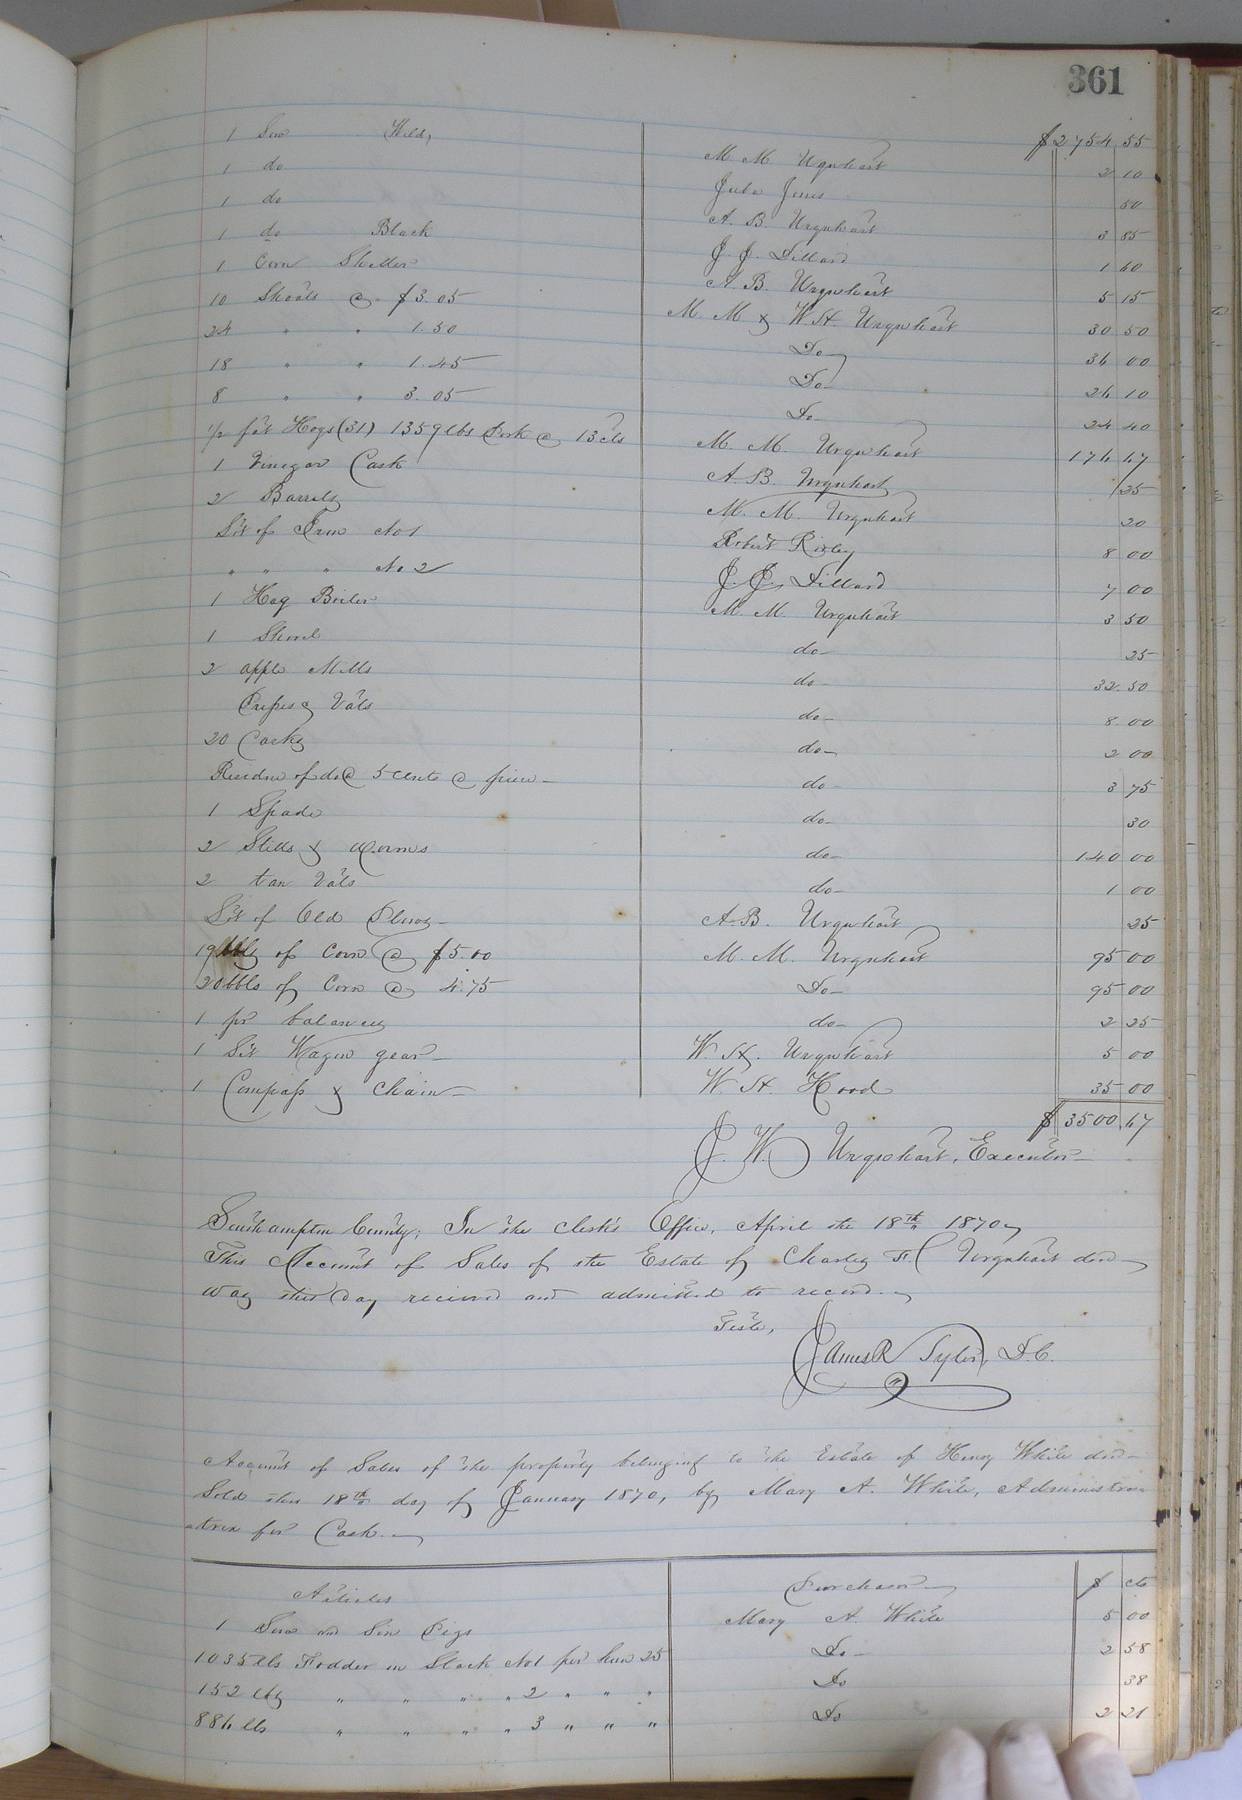 361
$2754 55
1 Sow Wild, M. M. Urquhart 2 10
1 do Jube Jones 50
1 do A. B. Urquhart 3 85
1 do Black J. J. Dillard 1 60
1 Corn Sheller A. B. Urquhart 5 15
10 Shoats @ $3.05 M. M & W. H. Urquhart 30 50
24 " " 1.50 Do 36 00
18 " " 1.45 Do 26 10
8 " " 3.05 Do 24 40
1/2 fat Hogs (31) 1359 lbs Pork @ 13 cts M. M. Urquhart 176 67
1 Vinegar Cask A. B. Urquhart 25
2 Barrels M. M. Urquhart 20
Lot of Iron No 1 Robert Ridley 8 00
" " " No 2 J. J. Dillard 7 00
1 Hog Boiler M. M. Urquhart 3 50
1 Shovel do 25
2 apple Mills do 32.50
Presses & Vats do 8.00
20 Casks do 2 00
Residue of do @ 5 cents @ piece do 3 75
1 Spade do 30
2 Stills & Worms do 140 00
2 tan Vats do 1 00
Lot of Old Plows A. B. Urquhart 25
19 bbls of Corn @ $5.00 M. M. Urquhart 95 00
20 bbls of Corn @ 4.75 Do 95 00
1 pr balances do 2 25
1 Set Wagon gear W. H. Urquhart 5 00
1 Compass & Chain W. H. Hood 35 00
$3500 67
J. W. Urquhart, Executor
Southampton County; In the Clerk's Office, April the 18th 1870
This Account of Sales of the Estate of Charles F. Urquhart decd
was this day received and admitted to record.
Teste,
James R Tyler, D.C.
Account of Sales of the property belonging to the Estate of Henry White decd
Sold this 18th day of January 1870, by Mary A. White, Administra
atrix for Cash.
Articles Purchaser $ cts
1 Sow and Six Pigs Mary A. White 5 00
1035 lbs Fodder in Stack No 1 per hun 25 Do 2 58
152 lbs " " " " 2 " " " Do 38
886 lbs " " " " 3 " " " Do 2 21